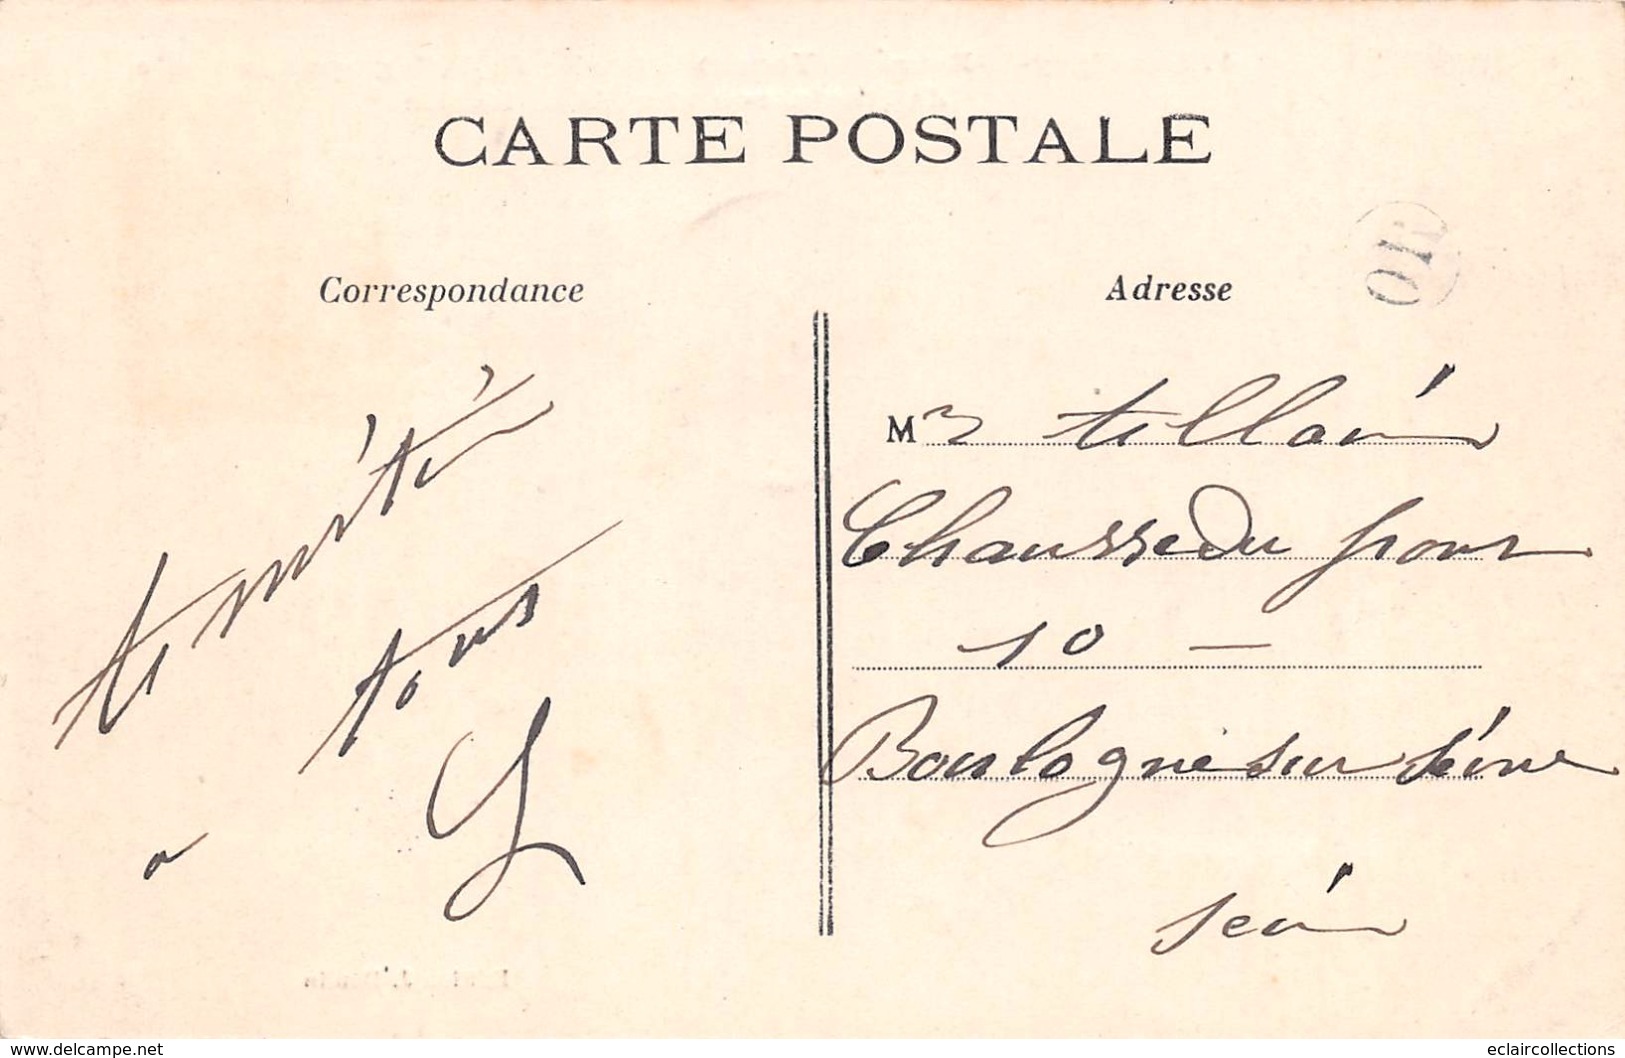 CARTE POSTALE
OR
Correspondance
Adresse
tous
à
Mr tillain
Chaussedu pont
10 —
Boulogne sur Seine
Sein
www.delcampe.net
eclaircollections